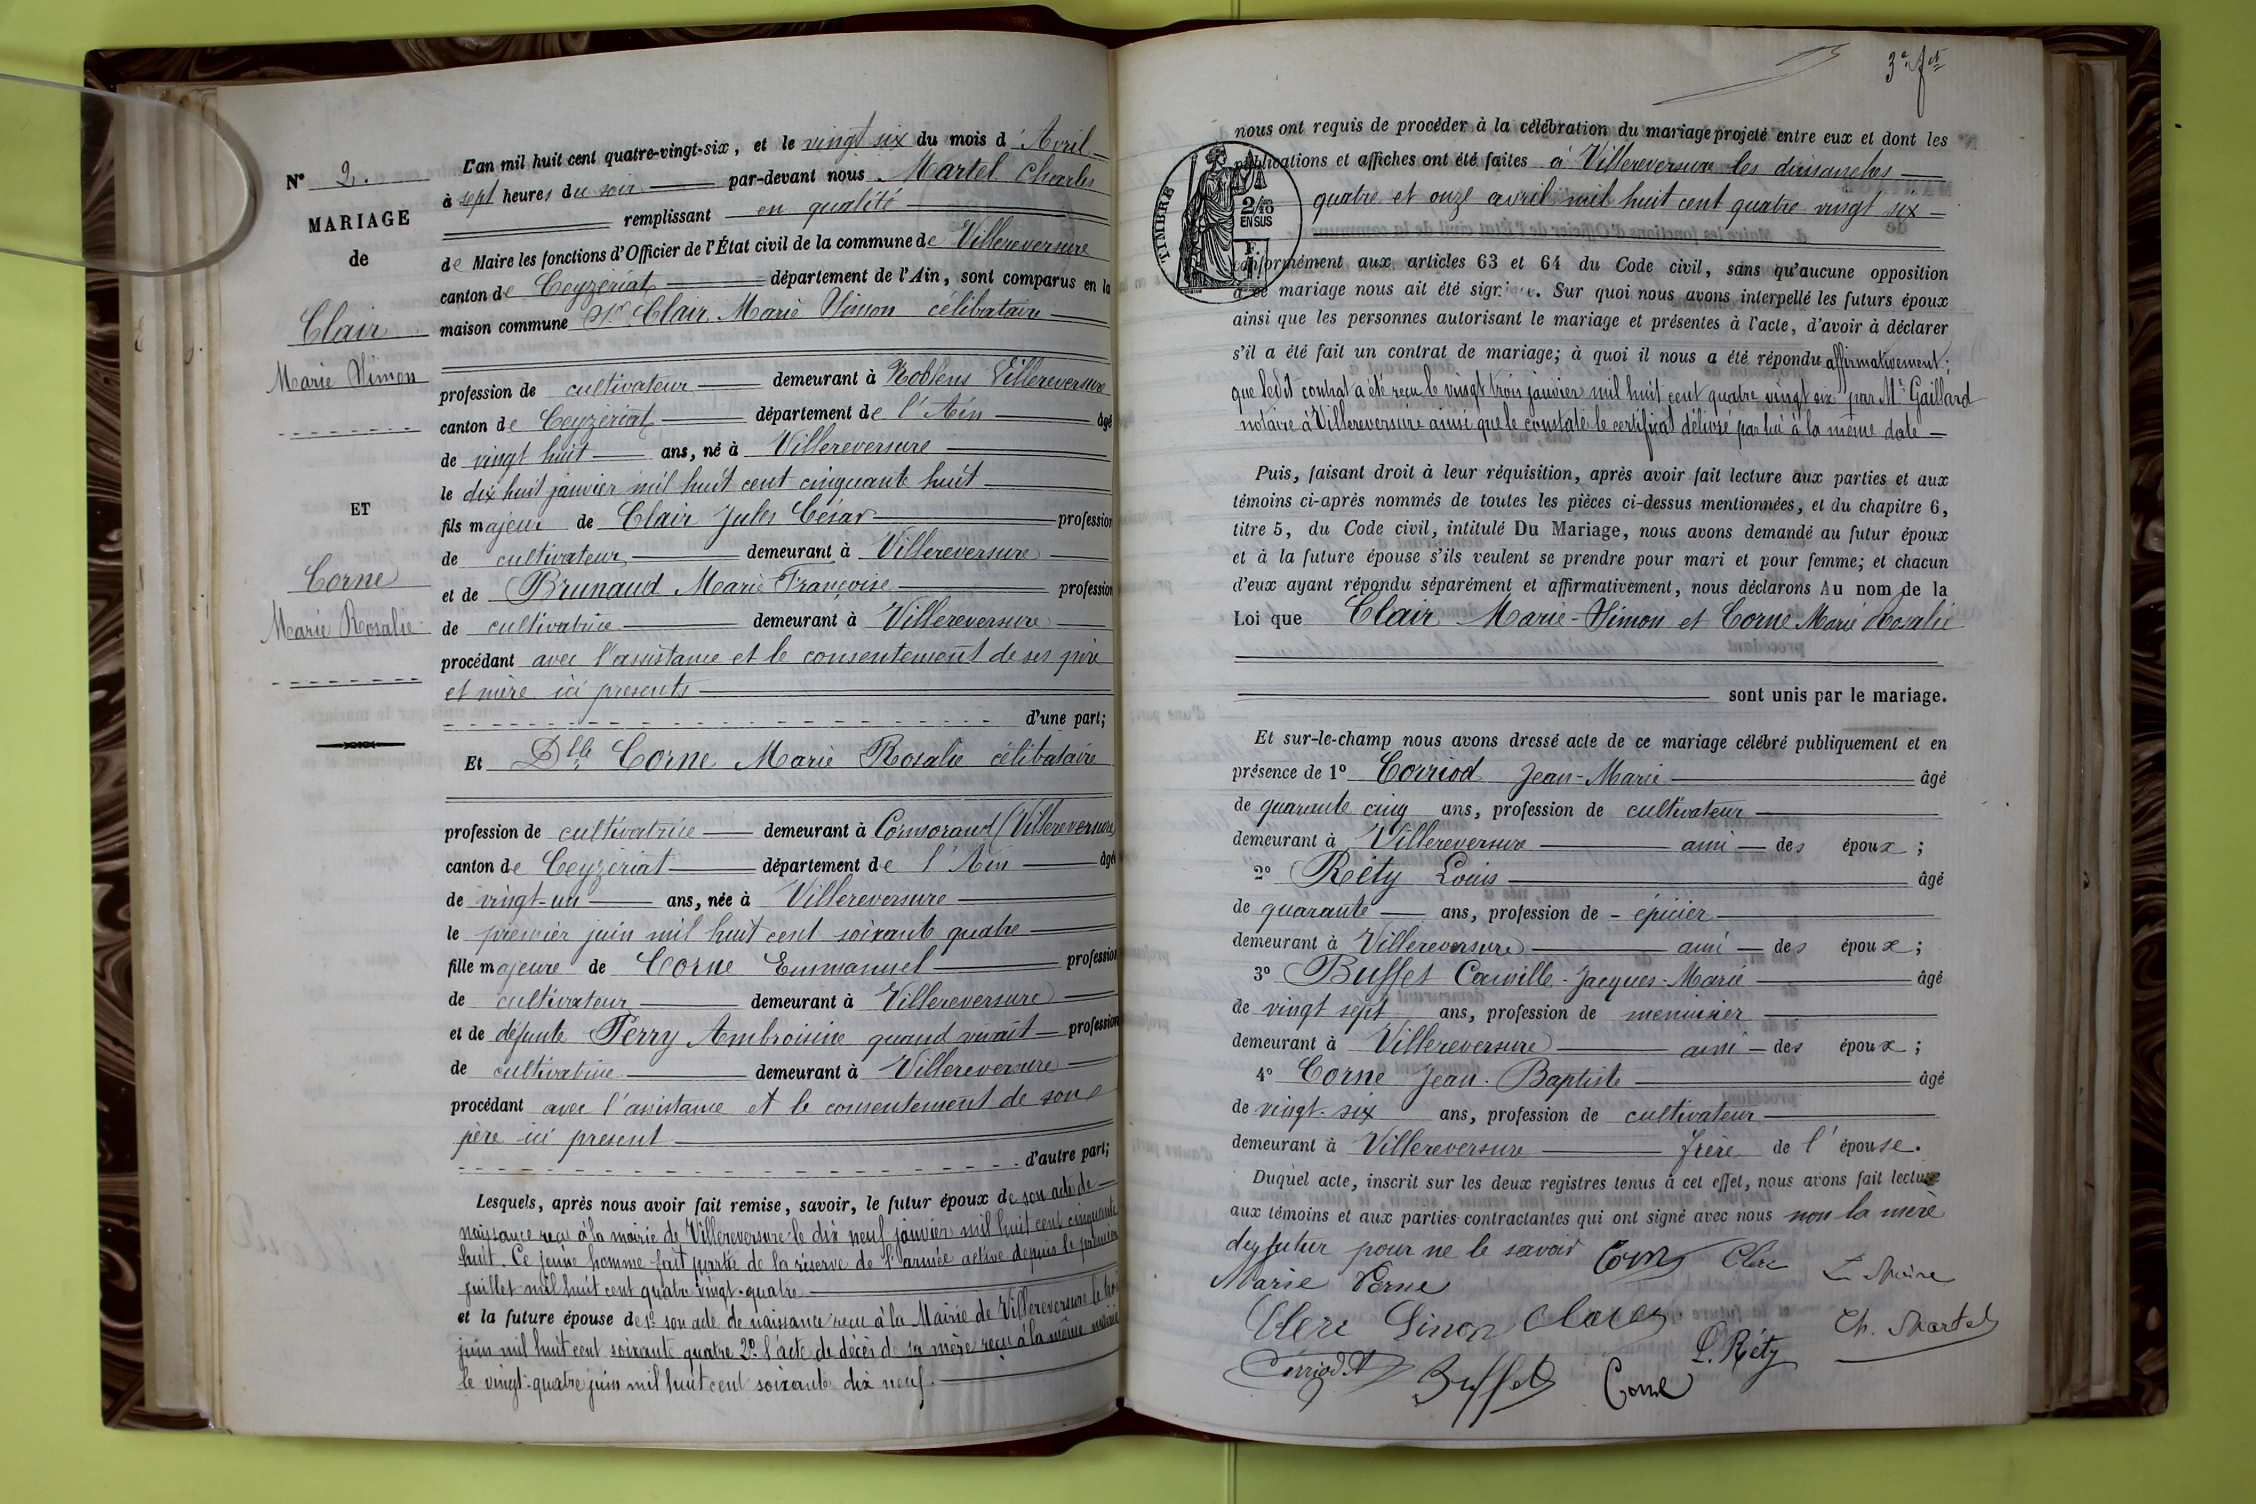 N° 2.
MARIAGE
de
Clair
Marie Simon
ET
Corne
Marie Rosalie
L'an mil huit cent quatre-vingt-six, et le vingt six du mois d'Avril
à sept heures du soir par-devant nous Martel Charles
remplissant en qualité
de Maire les fonctions d'Officier de l'État civil de la commune de Villereversure
canton de Ceyzériat département de l'Ain, sont comparus en la
maison commune Sr Clair Marie Simon célibataire
profession de cultivateur demeurant à Noblens Villereversure
canton de Ceyzériat département de l'Ain âgé
de vingt huit ans, né à Villereversure
le dix huit janvier mil huit cent cinquante huit
fils majeur de Clair Jules César profession
de cultivateur demeurant à Villereversure
et de Brunaud Marie Françoise profession
de cultivatrice demeurant à Villereversure
procédant avec l'assistance et le consentement de ses père
et mère ici presents
d'une part;
Et Dlle Corne Marie Rosalie célibataire
profession de cultivatrice demeurant à Cormoraud (Villereversure)
canton de Ceyzériat département de l'Ain âgée
de vingt-un ans, née à Villereversure
le premier juin mil huit cent soixante quatre
fille majeure de Corne Emmanuel profession
de cultivateur demeurant à Villereversure
et de défunte Ferry Ambroisine quand vivait profession
de cultivatrice demeurant à Villereversure
procédant avec l'assistance et le consentement de son
père ici present
d'autre part;
Lesquels, après nous avoir fait remise, savoir, le futur époux de son acte de
naissance reçu à la mairie de Villereversure le dix neuf janvier mil huit cent cinquante
huit. Ce jeune homme fait partie de la réserve de l'armée active depuis le premier
juillet mil huit cent quatre vingt-quatre
et la future épouse de 1° son acte de naissance reçu à la Mairie de Villereversure le trois
juin mil huit cent soixante quatre 2° l'acte de décès de sa mère reçu à la même mairie
le vingt-quatre juin mil huit cent soixante dix neuf.
3e ft
nous ont requis de procéder à la célébration du mariage projeté entre eux et dont les
publications et affiches ont été faites à Villereversure les dimanches
quatre et onze avril mil huit cent quatre vingt six
TIMBRE
2/10
EN SUS
conformément aux articles 63 et 64 du Code civil, sans qu'aucune opposition
à ce mariage nous ait été signifiée. Sur quoi nous avons interpellé les futurs époux
ainsi que les personnes autorisant le mariage et présentes à l'acte, d'avoir à déclarer
s'il a été fait un contrat de mariage; à quoi il nous a été répondu affirmativement;
que ledit contrat a été reçu le vingt trois janvier mil huit cent quatre vingt six par Me Gaillard
notaire à Villereversure ainsi que le constate le certificat délivré par lui à la même date
Puis, faisant droit à leur réquisition, après avoir fait lecture aux parties et aux
témoins ci-après nommés de toutes les pièces ci-dessus mentionnées, et du chapitre 6,
titre 5, du Code civil, intitulé Du Mariage, nous avons demandé au futur époux
et à la future épouse s'ils veulent se prendre pour mari et pour femme; et chacun
d'eux ayant répondu séparément et affirmativement, nous déclarons Au nom de la
Loi que Clair Marie-Simon et Corne Marie Rosalie
sont unis par le mariage.
Et sur-le-champ nous avons dressé acte de ce mariage célébré publiquement et en
présence de 1° Corriod Jean-Marie âgé
de quarante cinq ans, profession de cultivateur
demeurant à Villereversure ami des époux;
2° Réty Louis âgé
de quarante ans, profession de épicier
demeurant à Villereversure ami des époux;
3° Buffet Camille-Jacques-Marie âgé
de vingt sept ans, profession de menuisier
demeurant à Villereversure ami des époux;
4° Corne Jean-Baptiste âgé
de vingt-six ans, profession de cultivateur
demeurant à Villereversure frère de l'épouse.
Duquel acte, inscrit sur les deux registres tenus à cet effet, nous avons fait lecture
aux témoins et aux parties contractantes qui ont signé avec nous non la mère
du futur pour ne le savoir Corne Clerc
Marie Corne
Clerc Simon
Ch. Martel
L. Réty
Corriod Buffet Corne